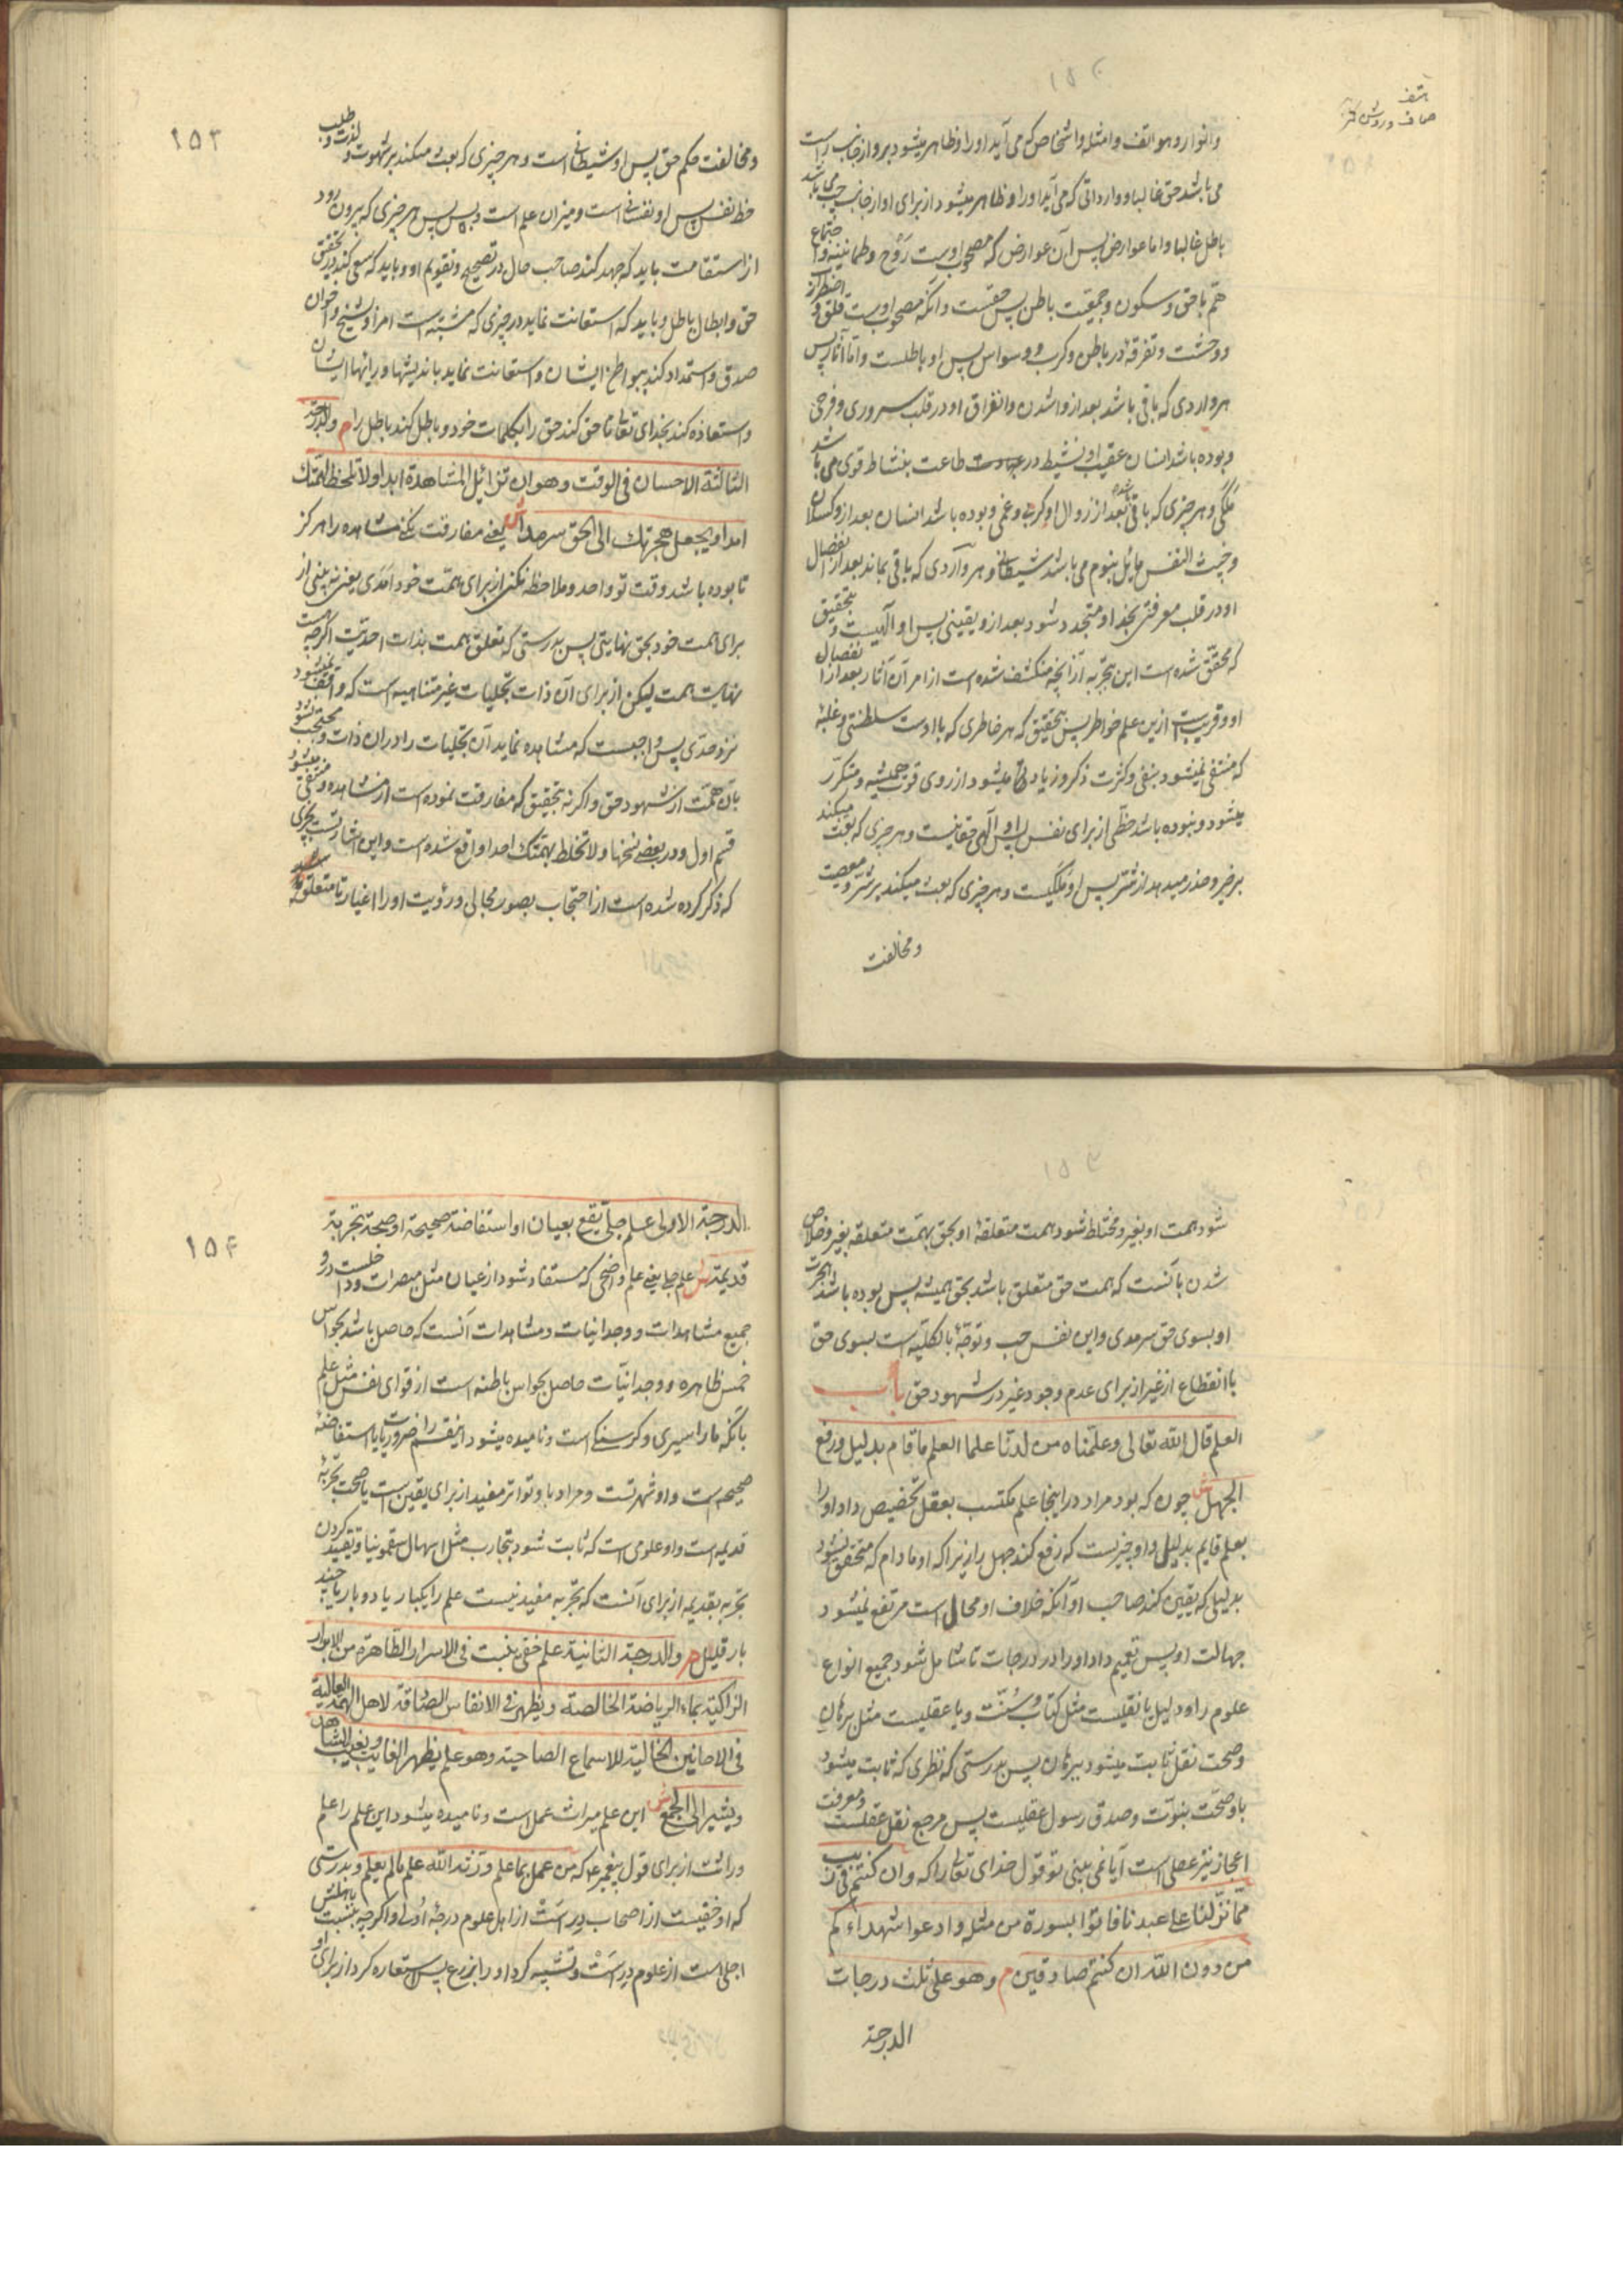 وانوار وهواتف وامثله واشخاص که می آید او را و ظاهر میشود بر او از جانب راست
می باشد حق غالبا و وارداتی که می آید او را و ظاهر میشود از برای او از جانب چپ می باشد
باطل غالبا واما عوارض پس آن عوارض که مصحوب اوست روح وطمانینه واجتماع
هم با حق وسکون وجمعیت باطن پس حقست وآنکه مصحوب اوست قلق واضطراب
ووحشت وتفرقه در باطن وکرب ووسواس پس او باطلست واما آثار پس
هر واردی که باقی باشد بعد از واشدن وانفراق او در قلب سروری وفرحی
وبوده باشد انسان عقیب او نشیط در عبادت طاعت بنشاط قوی می باشد
ملکی وهر چیزی که باقی شده بعد از زوال او کرب وغمی وبوده باشد انسان بعد ازو کسلان
وخبث النفس مایل بنوم می باشد شیطانی وهر واردی که باقی بماند بعد از انفصال
او در قلب معرفتی بخدا ومتجدد شود بعد ازو یقینی پس او الهیست وبتحقیق
که محقق شده است این بتجربه از آنچه منکشف شده است از امر آن آثار بعد از انفصال
او وقریبست ازین علم خواطر پس بتحقیق که هر خاطری که با اوست سلطنتی وغلبه
که منتفی نمیشود بنفی وکثرت ذکر وزیادتی میشود از روی قوت همیشه ومتکرر
میشود ونبوده باشد حظی از برای نفس در او پس او الهی حقانیست وهر چیزی که بعث میکند
بر خیر وحذر میدهد از شر پس او ملکیست وهر چیزی که بعث میکند بر شر ومعصیت
ومخالفت
۱۵۳
ومخالفت حکم حق پس او شیطانی است وهر چیزی که بعث میکند بر شهوت وطلب لذت و
حظ نفس پس او نفسانی است ومیزان علم است وبس پس هر چیزی که بیرون رود
از استقامت باید که جهد کند صاحب حال در تصحیح وتقویم او وباید که سعی کند در تحقیق
حق وابطال باطل وباید که استعانت نماید در چیزی که مشتبه است امر او بشیخ واخوان
صدق واستمداد کند ببواطن ایشان واستعانت نماید باندیشها ورایهاء ایشان
واستعاذه کند بخدای تعالی تا حق کند حق را بکلمات خود وباطل کند باطل را م والدرجة
الثالثة الاحسان فی الوقت وهو ان لا تزایل المشاهدة ابدا ولا تلحظ لهمتک
امدا ویجعل هجرتک الی الحق سرمدا ش یعنی مفارقت نکنی مشاهده را هرگز
تا بوده باشد وقت تو واحد وملاحظه نکنی از برای همت خود امدی یعنی نه بینی از
برای همت خود بحق نهایتی پس بدرستی که تعلق همت بذات احدیت اگرچه
نهایت همت لیکن از برای آن ذات تجلیات غیر متناهیه است که واقف نمیشود
نزد حدی پس واجبست که مشاهده نماید آن تجلیات را در آن ذات ومحتجب نشود
بآن همت از شهود حق واگر نه بتحقیق که مفارقت نموده است از مشاهده ومنتفی میشود
قسم اول ودر بعضی نسخها ولا تخلط بهمتک احدا واقع شده است واین اشارتست بچیزی
که ذکر کرده شده است از احتجاب بصور مجالی ورؤیت او را اغیار تا متعلق
شود همت او بغیر ومختلط شود همت متعلقه او بحق بهمت متعلقه بغیر وخلاص
شدن بآنست که همت حق متعلق باشد بحق همیشه پس بوده باشد هجرت
او بسوی حق سرمدی واین نفس حب وتوجه بالکلیه است بسوی حق
با انقطاع از غیر از برای عدم وجود غیر در شهود حق باب
العلم قال الله تعالی وعلمناه من لدنا علما العلم ما قام بدلیل ورفع
الجهل ش چون که بود مراد در اینجا علم مکتسب بعقل تخصیص داد او را
بعلم قایم بدلیل واو چیزیست که رفع کند جهل را زیرا که او مادام که متحقق نشود
بدلیلی که یقین کند صاحب او آنکه خلاف او محال است مرتفع نمیشود
جهالت او پس تعمیم داد او را در درجات تا شامل شود جمیع انواع
علوم را ودلیل یا نقلیست مثل کتاب وسنت ویا عقلیست مثل برهان
وصحت نقل ثابت میشود ببرهان پس بدرستی که نظری که ثابت میشود
باو صحت نبوت وصدق رسول عقلیست پس مرجع نقل عقلست ومعرفت
اعجاز نیز عقلی است آیا نمی بینی تو قول خدای تعالی را که وان کنتم فی ریب
مما نزلنا علی عبدنا فاتوا بسورة من مثله وادعوا شهداءکم
من دون الله ان کنتم صادقین م وهو علی ثلث درجات
الدرجة
۱۵۴
الدرجة الاولی علم جلی یقع بعیان او استفاضة صحیحة او صحة تجربة
قدیمة ش علم جلی یعنی علم واضحی که مستفاد شود از عیان مثل مبصرات وداخلست درو
جمیع مشاهدات ووجدانیات ومشاهدات آنست که حاصل باشد بحواس
خمس ظاهره ووجدانیات حاصل بحواس باطنه است از قوای نفس مثل علم
بآنکه ما را سیری وگرسنگی است ونامیده میشود اینقسم را ضروریات یا استفاضة
صحیحه است واو شهرتست ومراد باو تواتر مفید از برای یقین است یا صحت تجربه
قدیمه است واو علوی است که ثابت شود بتجارب مثل اسهال سقمونیا وتقیید کردن
تجربه بقدیمه از برای آنست که تجربه مفید نیست علم را یکبار یا دو بار یا چند
بار قلیل م والدرجة الثانیة علم خفی ینبت فی الاسرار الطاهرة من الابرار
الزاکیة بماء الریاضة الخالصة ویظهر فی الانفاس الصادقة لاهل الهمة العالیة
فی الاحایین الخالیة للاسماع الصاحیة وهو علم یظهر الغایب ویغیب الشاهد
ویشیر الی الجمع ش این علم میراث عمل است ونامیده میشود این علم را علم
وراثت از برای قول پیغمبر ع که من عمل بما علم ورّثه الله علم ما لم یعلم وبدرستی
که او خفیست از اصحاب دراست از اهل علوم درجه اولی واگرچه بنسبت باهلش
اجلی است از علوم دراست وتشبیه کرد او را بزرع پس استعاره کرد از برای او